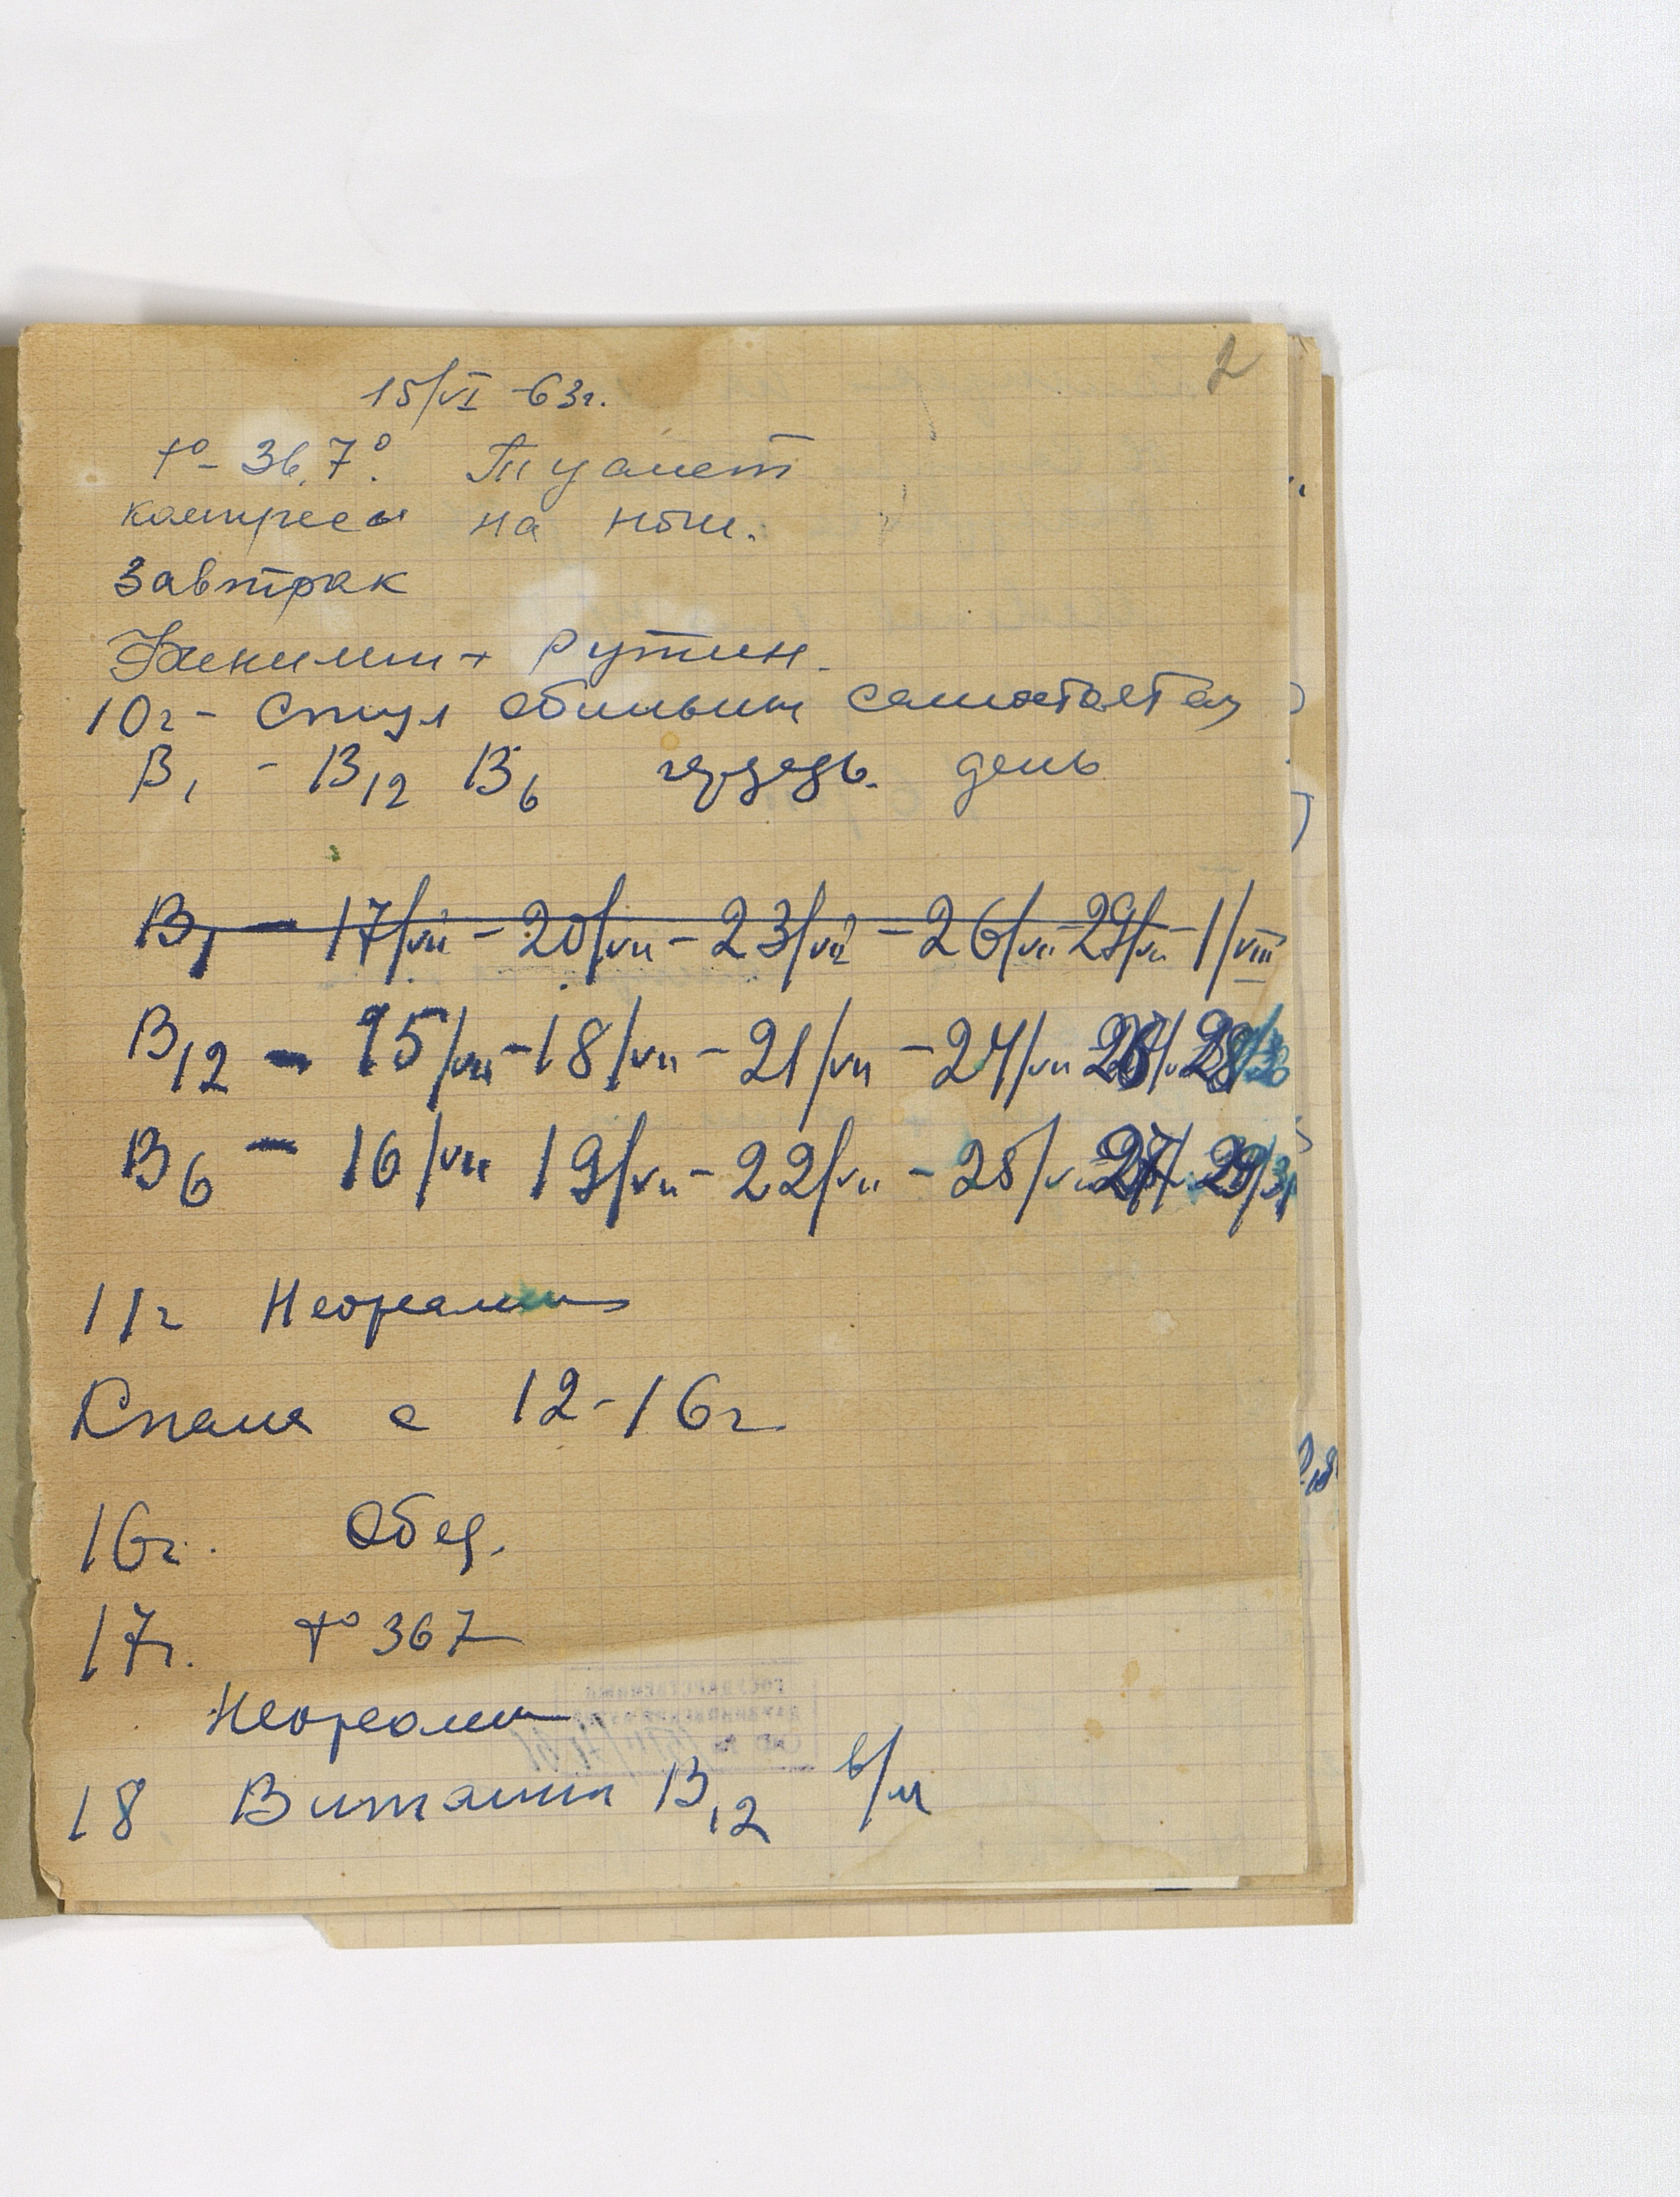 2
15/VI -63г.
t°- 36,7°. Туалет
компрессы на ноги.
Завтрак
Фенилин + Рутин.
10г - Стул обильный самостоят
B1 - B12 B6 день
B1 - 17/VII - 20/VII - 23/VII - 26/VII - 29/VII - 1/VIII
B12 - 15/VII - 18/VII - 21/VII - 24/VII
B6 - 16/VII 19/VII - 22/VII - 25/VII
11г Неореалин
Спала с 12-16г
16г. Обед.
17г. t° 367
Неореалин
18 Витамин B12 в/м